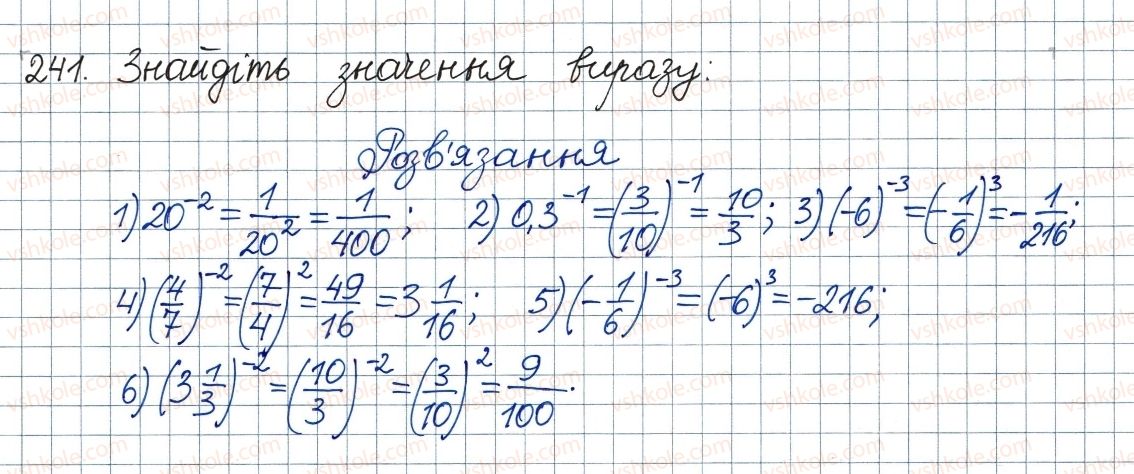 241. Знайдіть значення виразу:
Розв'язання
1) 20⁻² = 1/20² = 1/400; 2) 0,3⁻¹ = (3/10)⁻¹ = 10/3; 3) (-6)⁻³ = (-1/6)³ = -1/216;
4) (4/7)⁻² = (7/4)² = 49/16 = 3 1/16; 5) (-1/6)⁻³ = (-6)³ = -216;
6) (3 1/3)⁻² = (10/3)⁻² = (3/10)² = 9/100.
vshkole.com